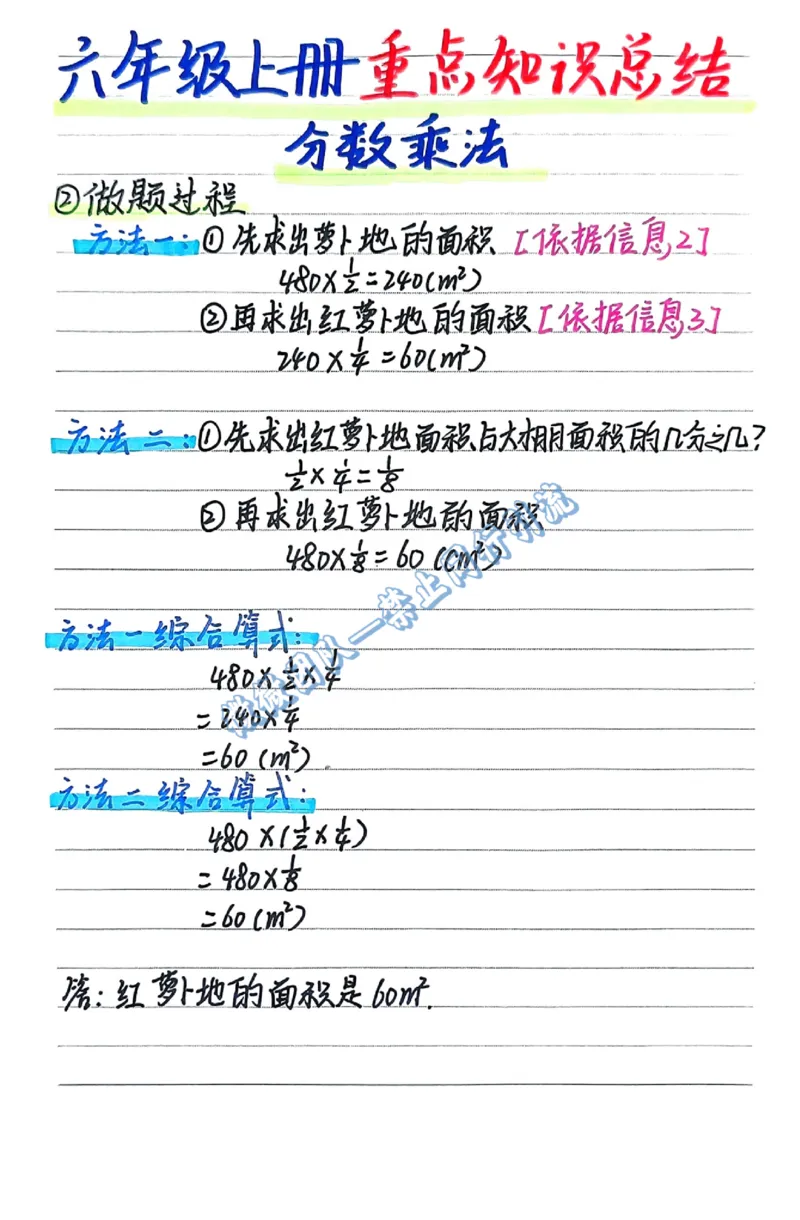 六年级上册重点知识总结
分数乘法
②做题过程
方法一:①先求出萝卜地的面积[依据信息2]
480×1/2=240(m²)
②再求出红萝卜地的面积[依据信息3]
240×1/4=60(m²)
方法二:①先求出红萝卜地面积占大棚面积的几分之几?
1/2×1/4=1/8
②再求出红萝卜地的面积
480×1/8=60(cm²)
方法一综合算式:
480×1/2×1/4
=240×1/4
=60(m²).
方法二综合算式:
480×(1/2×1/4)
=480×1/8
=60(m²)
答:红萝卜地的面积是60m².